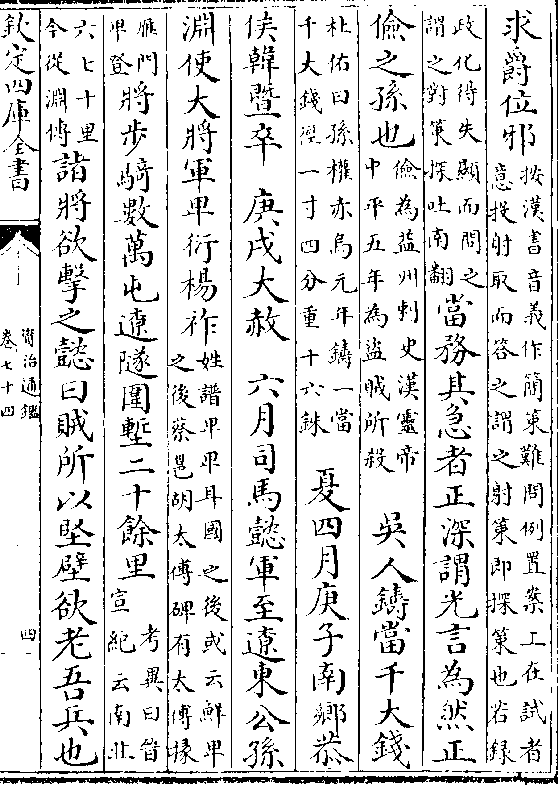 求爵位邪按漢書音義作簡策難問例置案工在試者意投射取而答之謂之射策即探策也若録
政化得失顯而問之謂之對策探吐南翻當務其急者正深謂光言為然正
儉之孫也儉為益州刺史漢靈帝中平五年為盜賊所殺 吳人鑄當千大錢
杜佑曰孫權赤烏元年鑄一當千大錢徑一寸四分重十六銖 夏四月庚子南鄉恭
侯韓暨卒 庚戌大赦 六月司馬懿軍至遼東公孫
淵使大將軍卑衍楊祚姓譜卑卑耳國之後或云鮮卑之後蔡邕胡太傅碑有太傅掾
雁門卑登將步騎數萬屯遼隧圍塹二十餘里考異曰晉宣紀云南北
六七十里今從淵傳諸將欲擊之懿曰賊所以堅壁欲老吾兵也
欽定四庫全書
資治通鑑
卷七十四
四